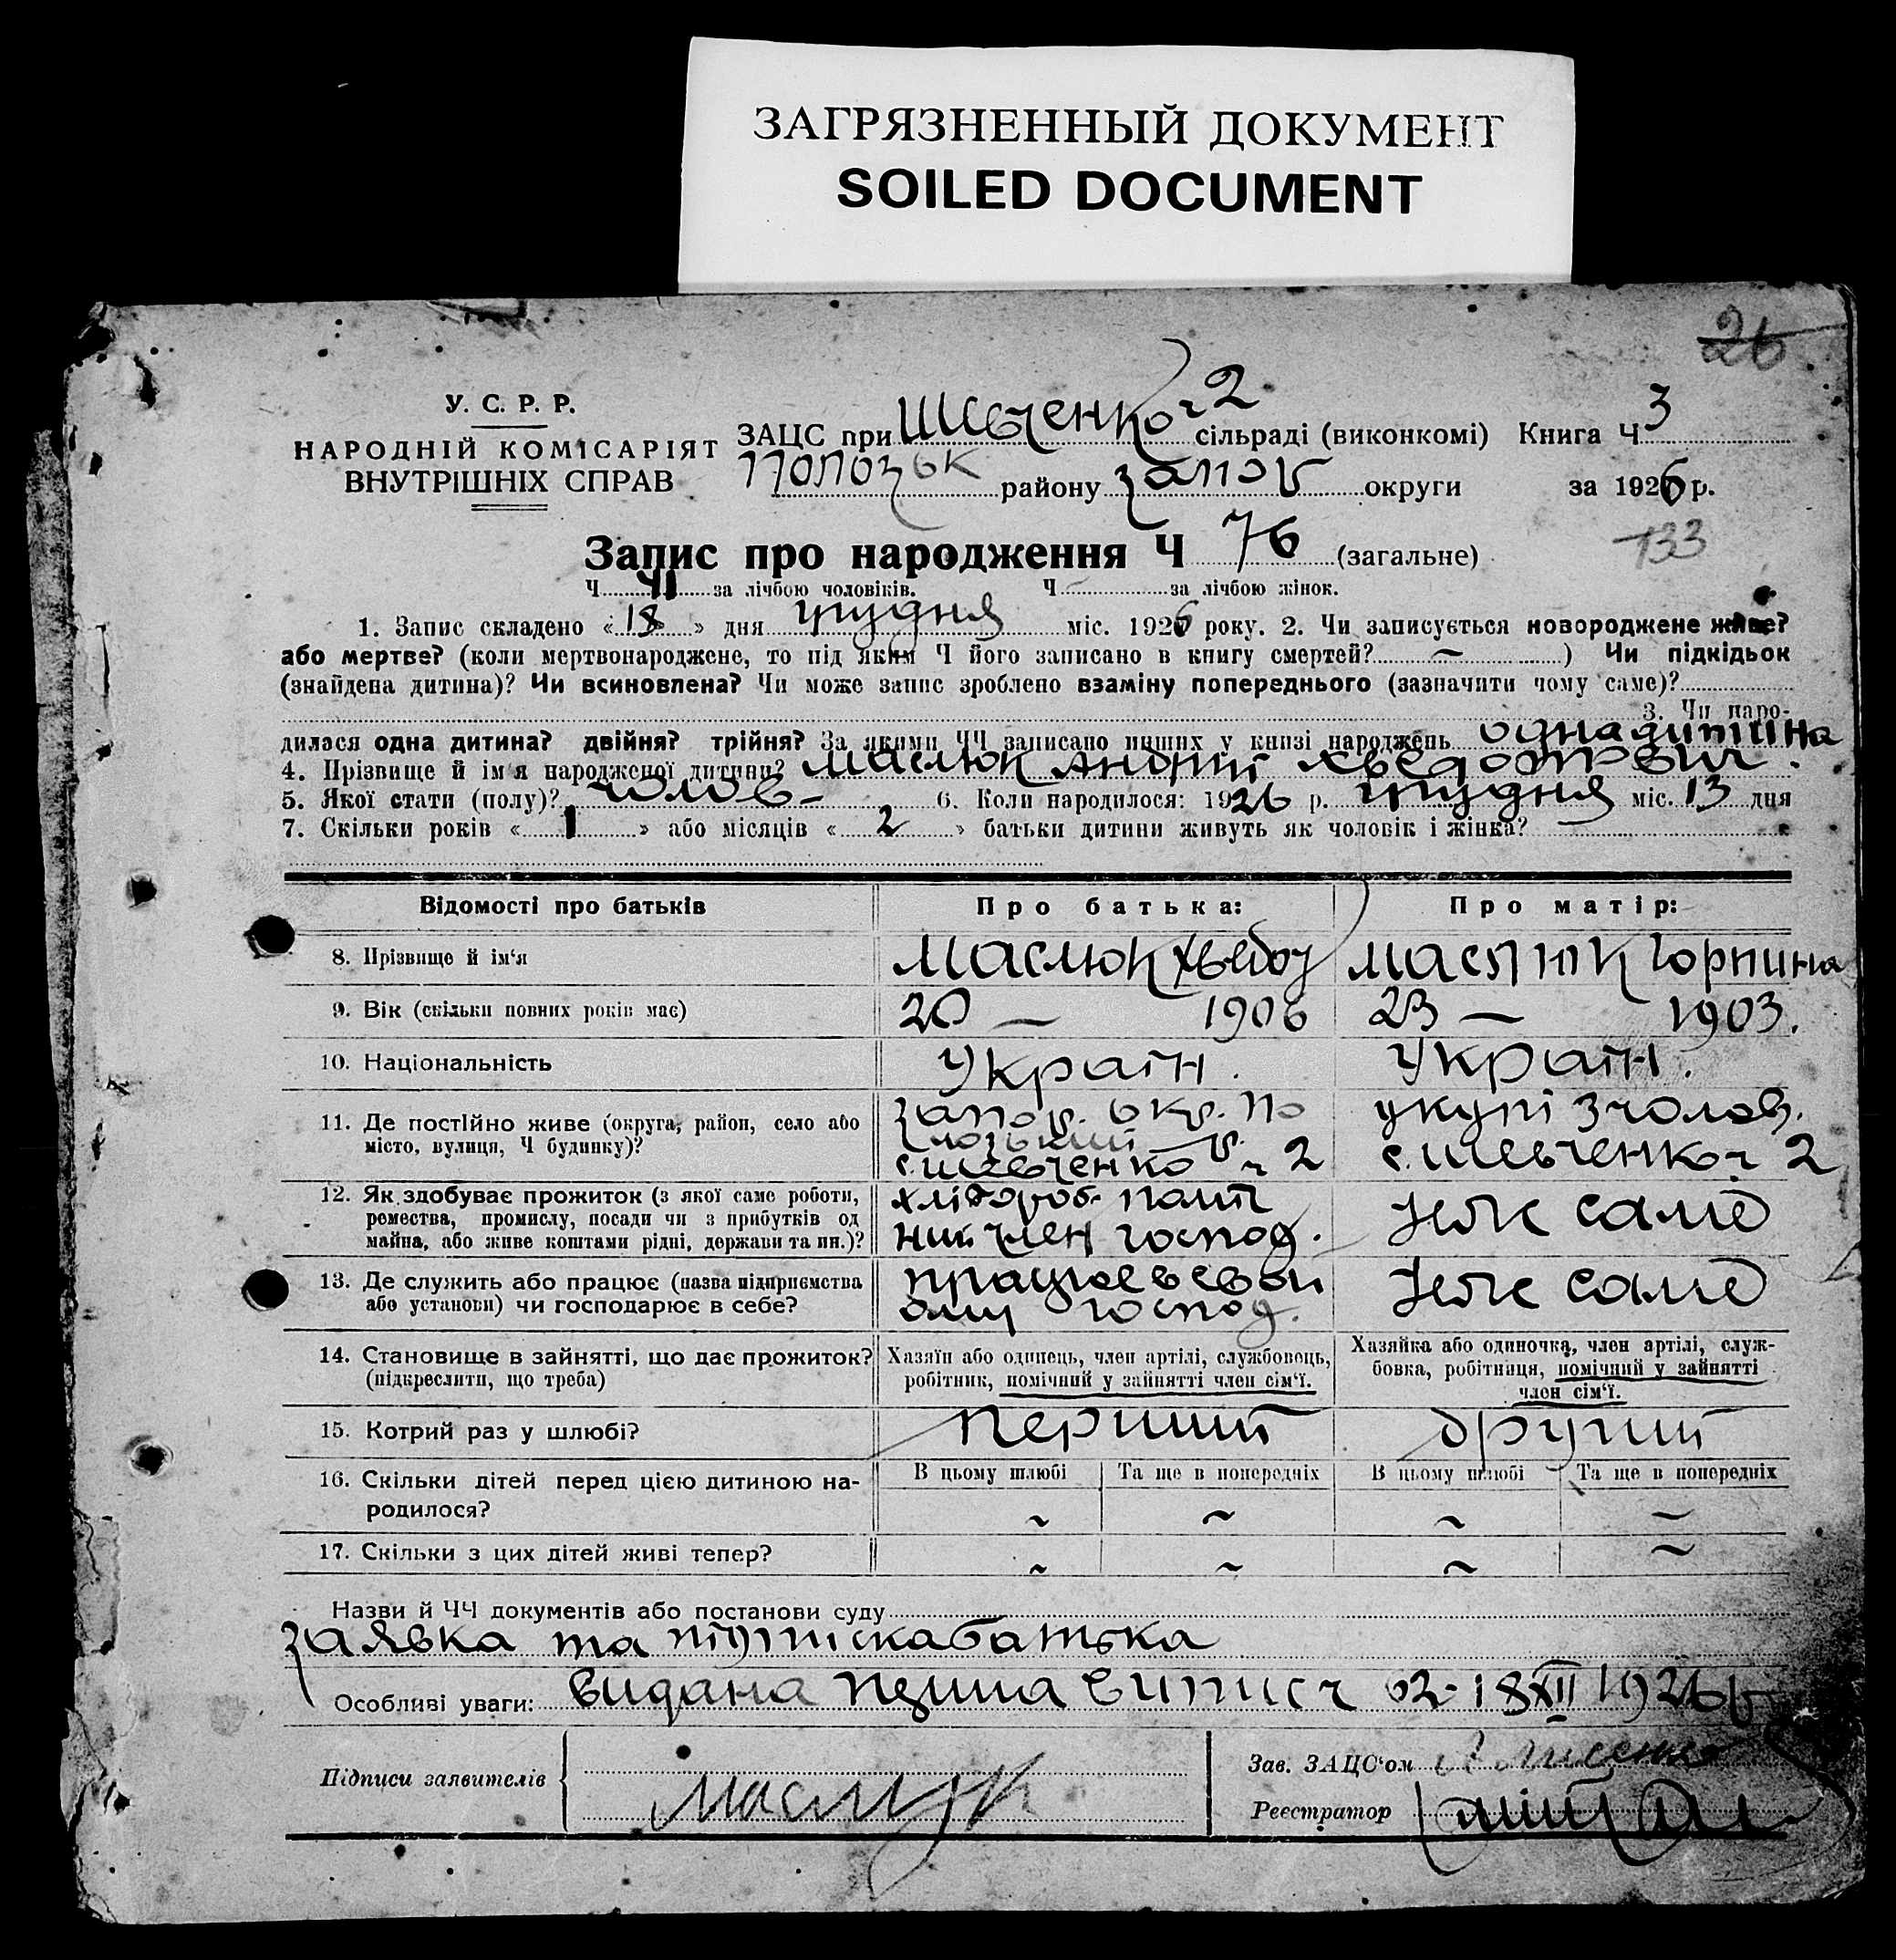 ЗАГРЯЗНЕННЫЙ ДОКУМЕНТ
SOILED DOCUMENT
26
У. С. Р. Р.
НАРОДНІЙ КОМІСАРІЯТ
ВНУТРІШНІХ СПРАВ
ЗАЦС при Шевченко ч 2 сільраді (виконкомі) Книга Ч 3
Полозьк району Запор округи за 1926 р.
Запис про народження Ч 76 (загальне)
133
Ч 41 за лічбою чоловіків. Ч за лічбою жінок.
1. Запис складено « 18 » дня грудня міс. 1926 року. 2. Чи записується новороджене живе?
або мертве? (коли мертвонароджене, то під яким Ч його записано в книгу смертей? — ) Чи підкідьок
(знайдена дитина)? Чи всиновлена? Чи може запис зроблено взаміну попереднього (зазначити чому саме)?
3. Чи наро-
дилася одна дитина? двійня? трійня? За якими ЧЧ записано инших у книзі народжень одна дитина
4. Прізвище й ім'я народженої дитини? Маслюк Андрій Хведорович.
5. Якої стати (полу)? чолов- 6. Коли народилося: 1926 р. грудня міс. 13 дня
7. Скільки років « 1 » або місяців « 2 » батьки дитини живуть як чоловік і жінка?
Відомості про батьків Про батька: Про матір:
8. Прізвище й ім'я Маслюк Хведор Маслюк Горпина
9. Вік (скільки повних років має) 20 — 1906 23 — 1903.
10. Національність Україн. Україн.
11. Де постійно живе (округа, район, село або
місто, вулиця, Ч будинку)?
Запор. окр. По
лозький р.
с. Шевченко ч 2
укупі з чолов.
с. Шевченко ч 2
12. Як здобуває прожиток (з якої саме роботи,
ремества, промислу, посади чи з прибутків од
майна, або живе коштами рідні, держави та ин.)?
хлібороб. поміч
ний член господ.
теж саме
13. Де служить або працює (назва підприємства
або установи) чи господарює в себе?
працює в свой
ому господ.
теж саме
14. Становище в зайнятті, що дає прожиток?
(підкреслити, що треба)
Хазяїн або одинець, член артілі, службовець,
робітник, помічний у зайнятті член сім'ї.
Хазяйка або одиночка, член артілі, служ-
бовка, робітниця, помічний у зайнятті
член сім'ї.
15. Котрий раз у шлюбі? перший другий
16. Скільки дітей перед цією дитиною на-
родилося?
В цьому шлюбі Та ще в попередніх В цьому шлюбі Та ще в попередніх
~ ~ ~ ~
17. Скільки з цих дітей живі тепер? ~ ~ ~ ~
Назви й ЧЧ документів або постанови суду
заявка та підписка батька
Особливі уваги: видана перша випис ч 02- 18 XII 1926 р
Підписи заявителів Маслюк
Зав. ЗАЦС'ом
Реєстратор